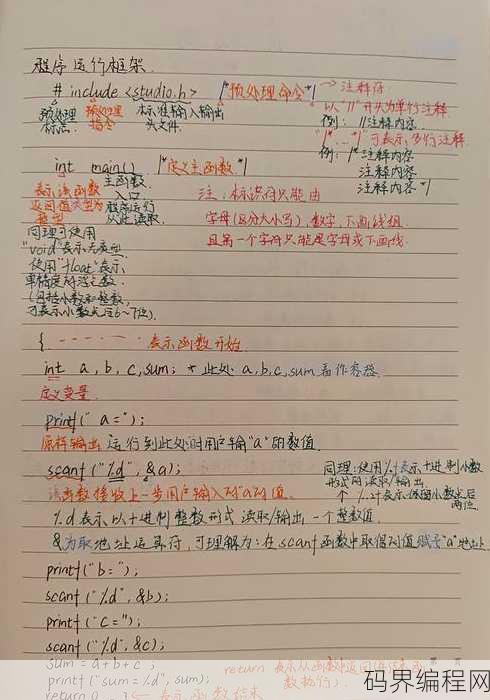 程序运行框架.
# include <studio.h> /*预处理命令*/ → 注释符
预处理 预处理 标准输入输出 以"//"开头为单行注释.
标志. 指令 头文件. 例: //注释内容.
"/*...*/"可表示多行注释.
int main() /*定义主函数*/ 例: /*注释内容
表示该函数 主函数 注释内容
返回值类型为 入口 注: 标识符只能由 注释内容*/
整型 程序运行
从此读取. 字母(区分大小写), 数字, 下画线组.
同理可使用 且第一个字符只能是字母或下画线.
"void"表示无类型.
使用"float"表示,
单精度浮点数
(包括小数和整数,
可表示小数点后6~7位).
{ ------ 表示函数开始.
int a, b, c, sum; * 此处 a,b,c,sum 看作容器.
定义变量.
printf(" a=");
原样输出 运行到此处时用户输"a"的数值.
scanf ("%d", &a); 同理:使用%f表示十进制小数
形式的读取/输出.
该函数接收上一步用户输入的a的值. 个 %.2f表示保留小数点后
两位.
%d 表示以十进制整数形式 读取/输出 一个整数值.
&为取地址运算符, 可理解为: 在scanf函数中取得的值赋予"a"地址上
printf("b=");
scanf("%d", &b);
printf("c=");
scanf("%d", &c);
sum = a+b+c ; return 表示从函数中返回
printf("sum=%d", sum);
return 0 } ← 表示函数结束
码界编程网